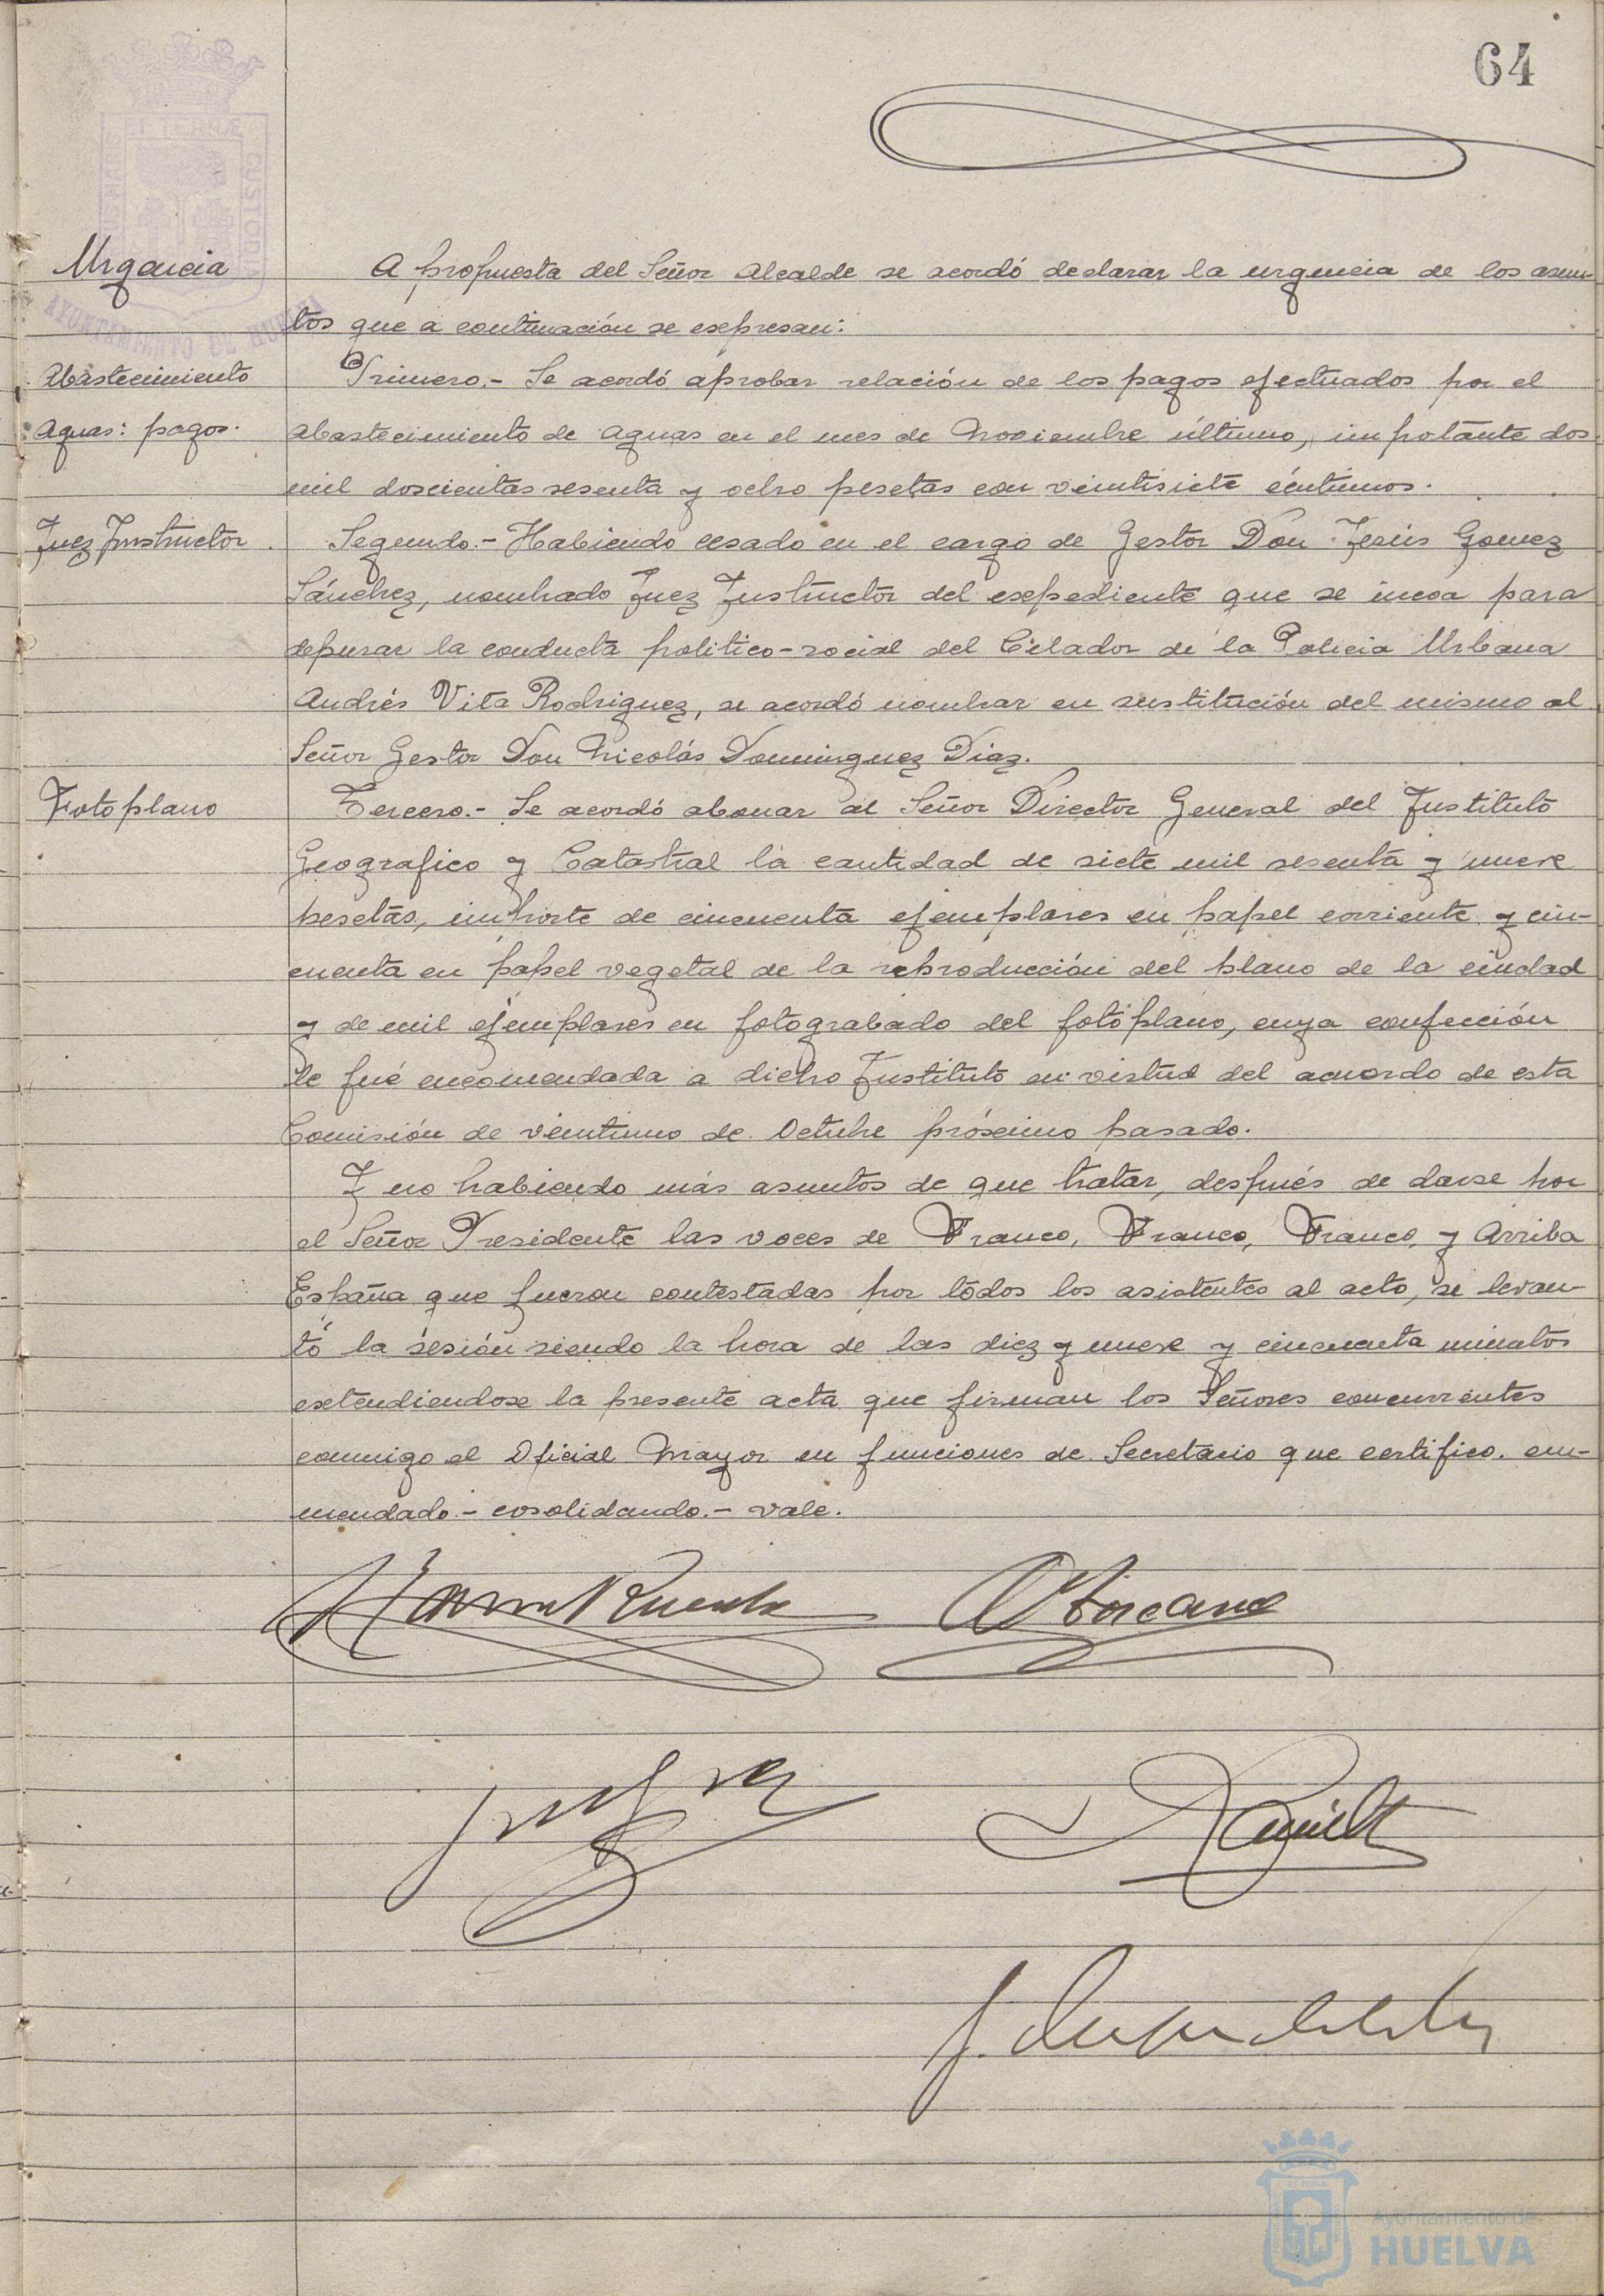 64
Urgencia
A propuesta del Señor Alcalde se acordó declarar la urgencia de los asun-
tos que a continuación se expresan:
Abastecimiento
Aguas: pagos.
Primero.- Se acordó aprobar relación de los pagos efectuados por el
abastecimiento de aguas en el mes de Noviembre último, importante dos
mil doscientas sesenta y ocho pesetas con veintisiete céntimos.
Juez Instructor
Segundo.- Habiendo cesado en el cargo de Gestor Don Jesús Gomez
Sánchez, nombrado Juez Instructor del expediente que se incoa para
depurar la conducta politico-social del Celador de la Policia Urbana
Andrés Vita Rodriguez, se acordó nombrar en sustitución del mismo al
Señor Gestor Don Nicolás Dominguez Diaz.
Fotoplano
Tercero.- Se acordó abonar al Señor Director General del Instituto
Geografico y Catastral la cantidad de siete mil sesenta y nueve
pesetas, importe de cincuenta ejemplares en papel corriente y cin-
cuenta en papel vegetal de la reproducción del plano de la ciudad
y de mil ejemplares en fotograbado del fotoplano, cuya confección
le fué encomendada a dicho Instituto en virtud del acuerdo de esta
Comisión de veintiuno de Octubre próximo pasado.
Y no habiendo más asuntos de que tratar, después de darse por
el Señor Presidente las voces de Franco, Franco, Franco, y Arriba
España que fueron contestadas por todos los asistentes al acto, se levan-
tó la sesión siendo la hora de las diez y nueve y cincuenta minutos
extendiendose la presente acta que firman los Señores concurrentes
conmigo el Oficial Mayor en funciones de Secretario que certifico. en-
mendado.- cosolidando.- vale.
AYUNTAMIENTO DE HUELVA
CUSTODIA
Ayuntamiento de
HUELVA